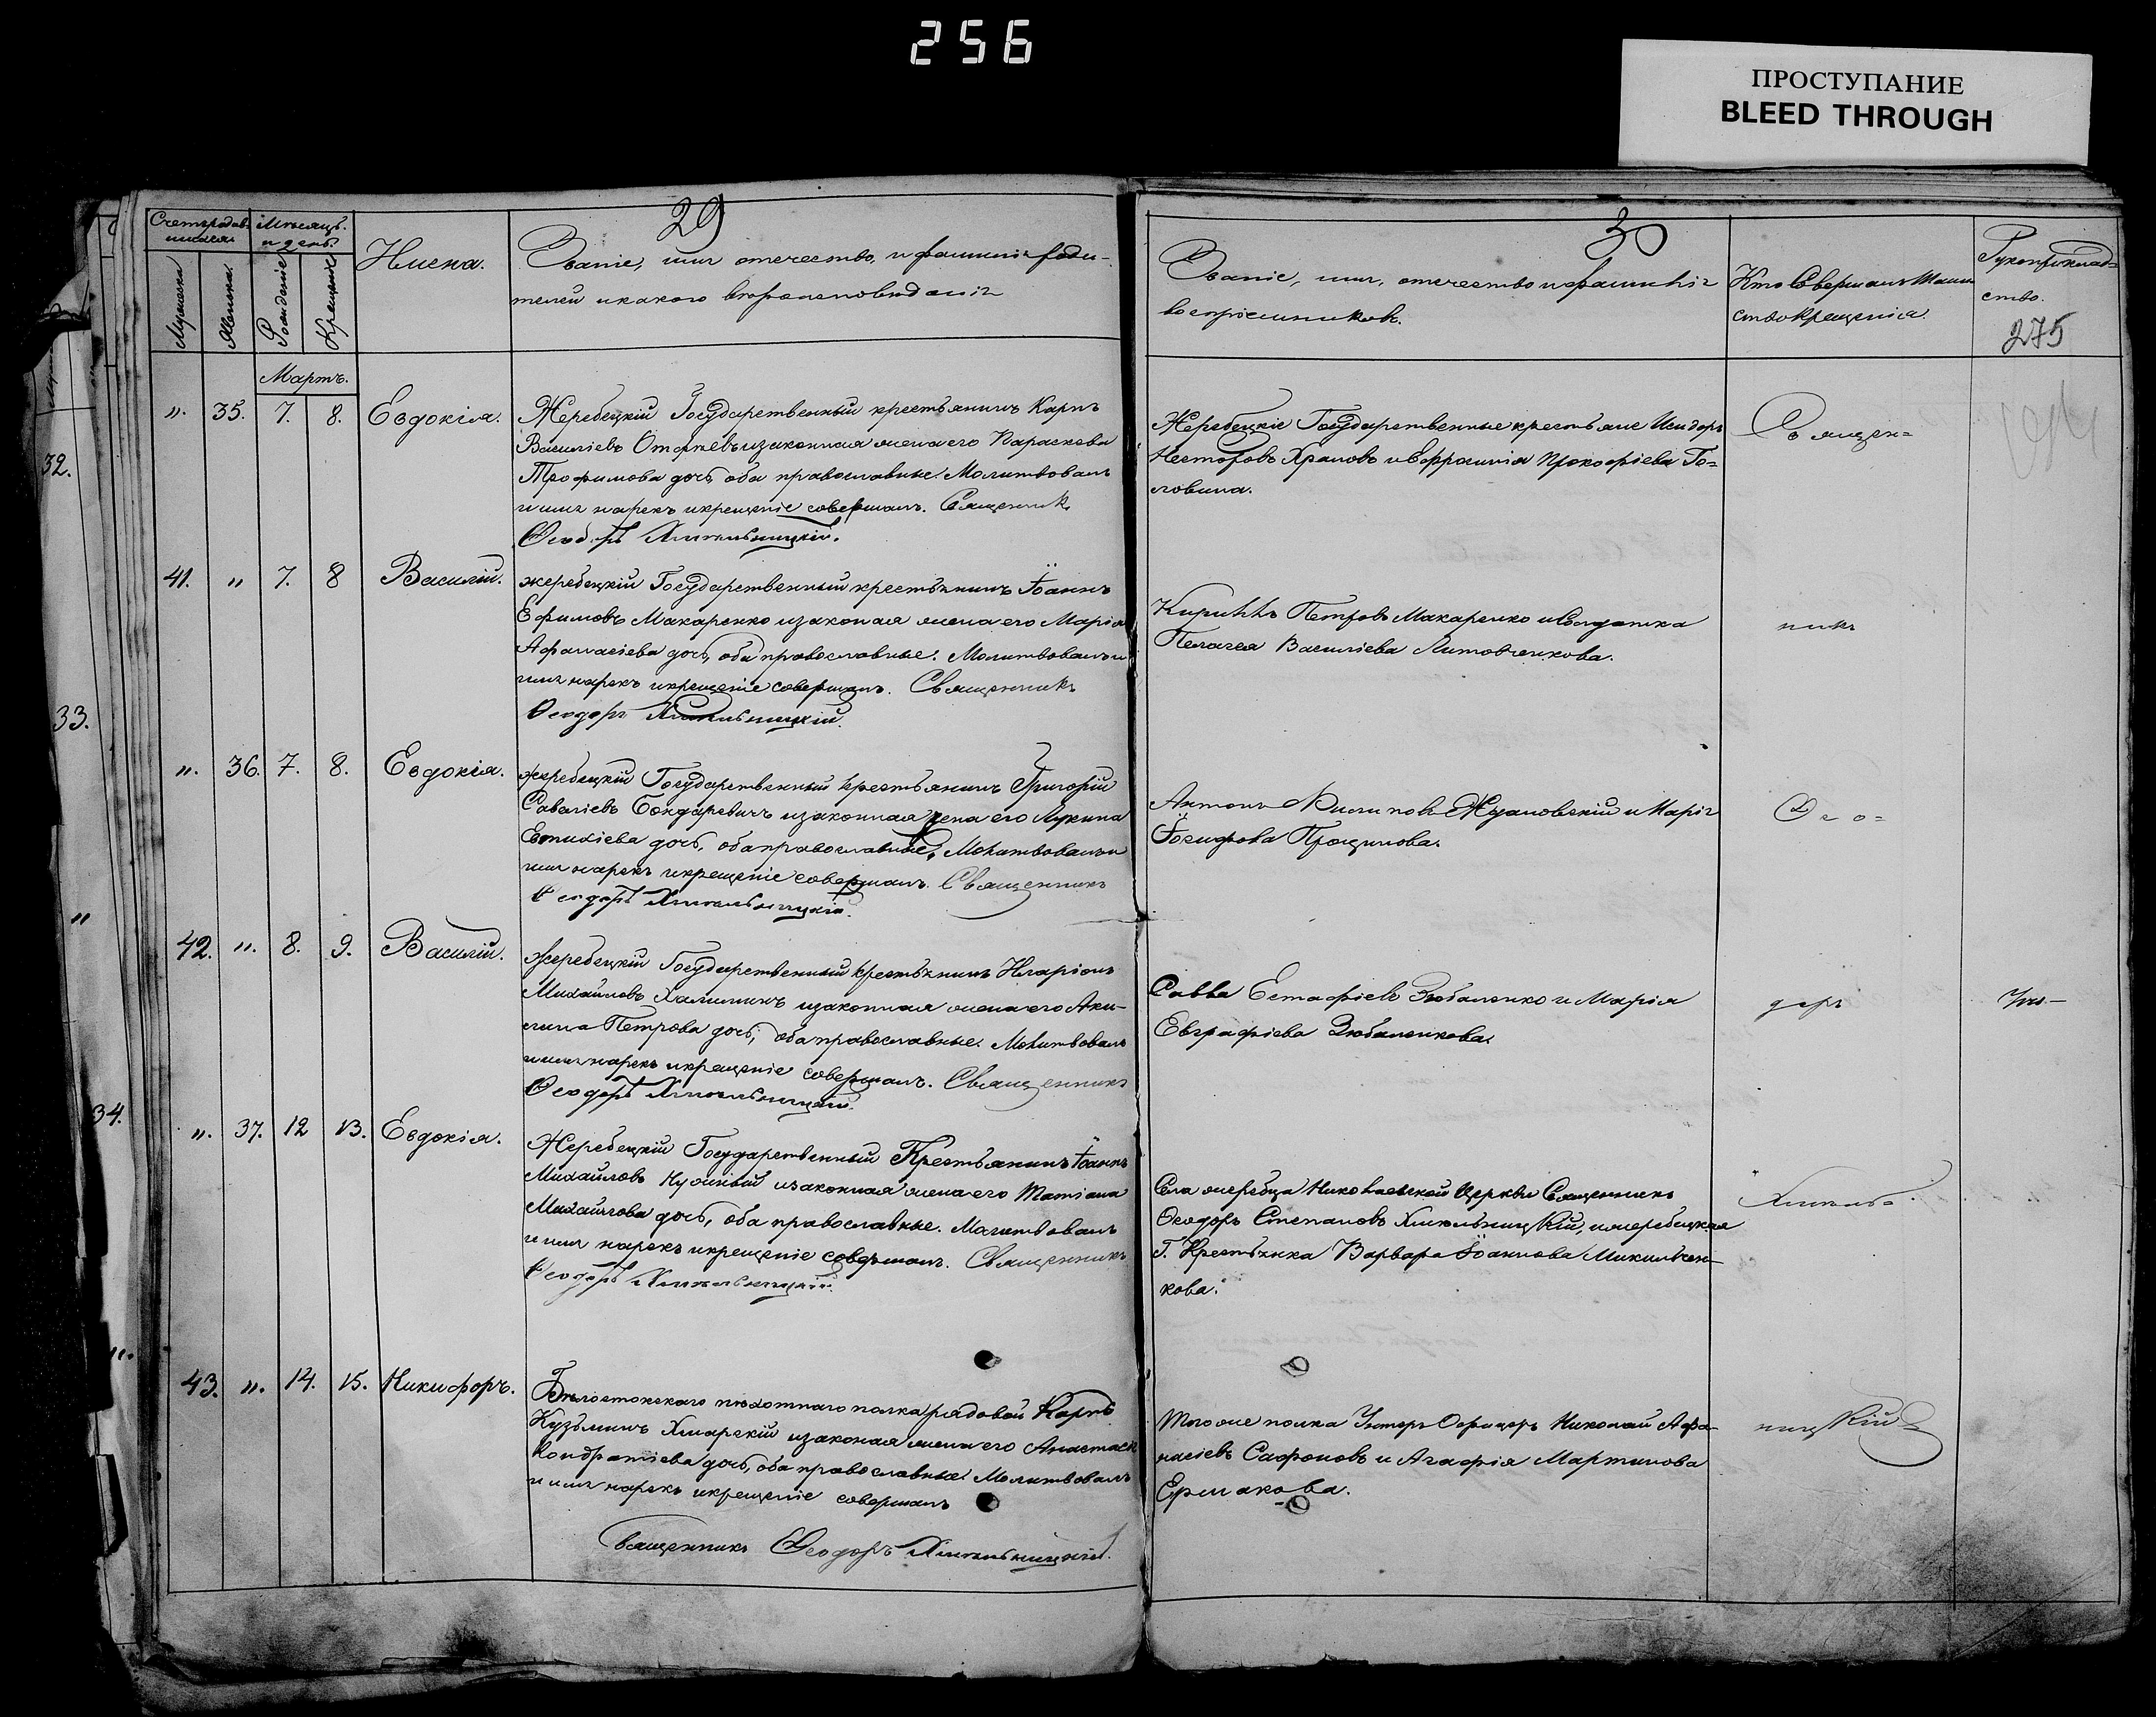 256
ПРОСТУПАНИЕ
BLEED THROUGH
29
Счетъ родив-
шихся.
Мѣсяцъ.
и день.
Мужеска
Женска.
Рожденіе
Крещеніе
Имена.
Званіе, имя отечество, и фамилія роди-
телей и какого вѣроисповѣданія
30
Званіе, имя, отечество и фамилія
воспріемниковъ.
Кто Совершалъ Таин
ство крещенія.
Рукоприклад=
ство.
275
Мартъ.
„. 35. 7. 8. Евдокія.
Жеребецкій Государственный крестьянинъ Карпъ
Василіевъ и законная жена его Параскева
Трофимова дочь, оба православные. Молитвовалъ
и имя нарекъ и крещеніе совершалъ. Священникъ
Ѳеодоръ Хмѣльницкій.
Жеребецкіе Государственные крестьяне Исидоръ
Несторовъ Храповъ и Евфросинія Прокофіева Го=
ловина.
Священ=
41. „ 7. 8 Василій.
жеребецкій Государственный крестьянинъ Іоаннъ
Ефимовъ Макаренко и законая жена его Марія
Афанасіева дочь, оба православные. Молитвовалъ и
имя нарекъ и крещеніе совершалъ. Священникъ
Ѳеодоръ Хмѣльницкій.
Кириллъ Петровъ Макаренко и Солдатка
Пелагея Василіева Литовченкова.
никъ
„. 36. 7. 8. Евдокія.
жеребецкій Государственный крестьянинъ Григорій
Саваліевъ Бондаревичъ и законная жена его Лукина
Евтихіева дочь, оба православные. Молитвовалъ и
имя нарекъ и крещеніе совершалъ. Священникъ
Ѳеодоръ Хмѣльницкій.
Антонъ Филиповъ Ждановскій и Марія
Іосифова Прощинова.
Ѳео=
42. „. 8. 9. Василій.
жеребецкій Государственный крестьянинъ Иларіонъ
Михайловъ Халининъ и законная жена его Аки-
лина Петрова дочь, оба православные. Молитвовалъ
и имя нарекъ и крещеніе совершалъ. Священникъ
Ѳеодоръ Хмѣльницкій.
Савва Естафіевъ Зюбаленко и Марія
Евграфіева Зюбаленкова.
доръ
„. 37. 12 13. Евдокія.
Жеребецкій Государственный Крестьянинъ Іоаннъ
Михайловъ Нужный и законная жена его Татіана
Михайлова дочь, оба православные. Молитвовалъ
и имя нарекъ и крещеніе совершалъ. Священникъ
Ѳеодоръ Хмѣльницкій.
Села жеребца Николаевской Церкви Священникъ
Ѳеодоръ Степановъ Хмѣльницкій, и жеребецкая
Г. Крестьянка Варвара Іоаннова Микильчен-
кова.
Хмѣль=
43. „. 14. 15. Никифоръ.
Бѣлостокскаго пѣхотнаго полка рядовой Карпъ
Кузьминъ Хмарскій и законая жена его Анастасія
Кондратіева дочь, оба православные. Молитвовалъ
и имя нарекъ и крещеніе совершалъ
Священникъ Ѳеодоръ Хмѣльницкій.
Тогоже полка Унтеръ Офицеръ Николай Афа-
насіевъ Сафоновъ и Агафія Мартинова
Ермакова.
ницкій
32.
33.
„
34.
„.